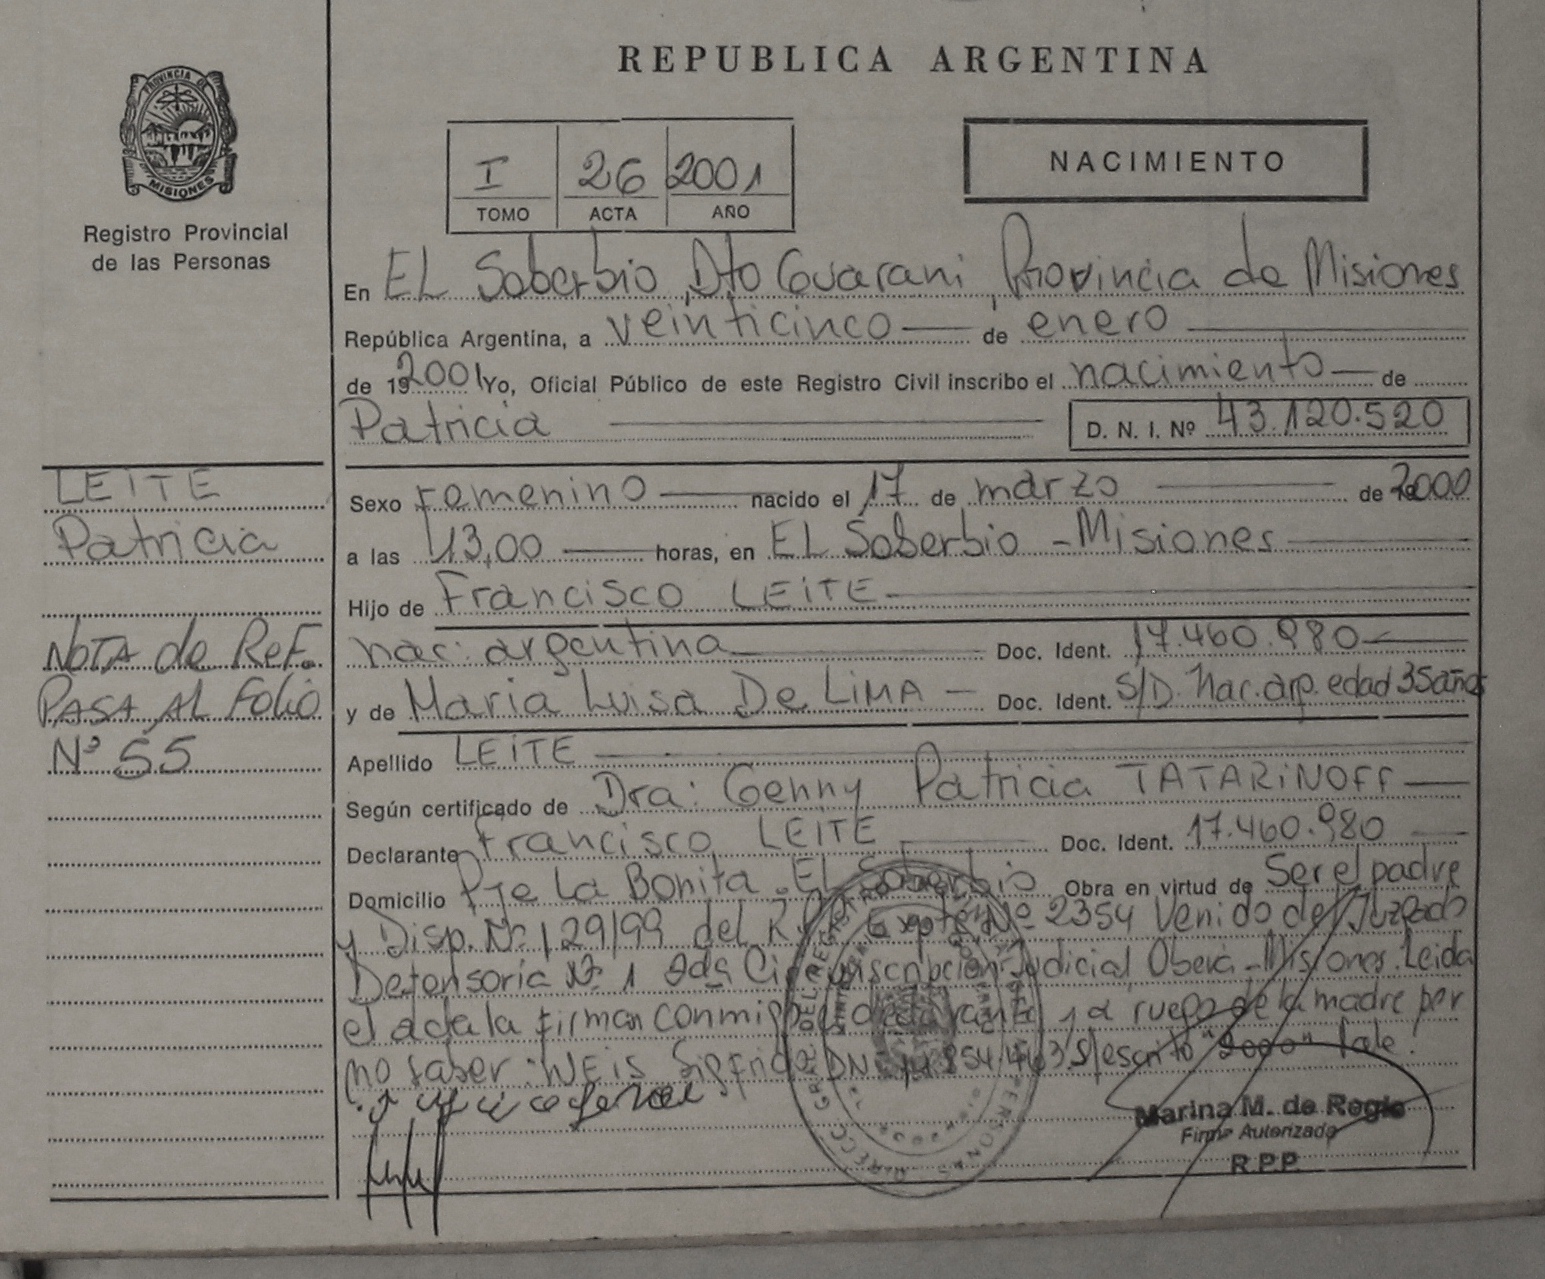 REPUBLICA ARGENTINA
PROVINCIA D
MISIONES
Registro Provincial
de las Personas
I 26 2001
TOMO ACTA AÑO
NACIMIENTO
En EL Soberbio, Dto Guarani, Provincia de Misiones
República Argentina, a veinticinco de enero
de 192001 Yo, Oficial Público de este Registro Civil inscribo el nacimiento de
Patricia D. N. I. Nº 43.120.520
LEITE
Patricia
NOTA de REF.
PASA AL Folio
Nº 55
Sexo Femenino nacido el 17 de marzo de 2000
a las 13,00 horas, en EL Soberbio - Misiones
Hijo de Francisco LEITE
nac: argentina Doc. Ident. 17.460.980
y de Maria Luisa De LiMA - Doc. Ident. S/D. nac. arg. edad 35 años
Apellido LEITE
Según certificado de Dra: Genny Patricia TATARiNOFF
Declarante Francisco LEITE Doc. Ident. 17.460.980
Domicilio Pje La Bonita. EL Soberbio Obra en virtud de Ser el padre
y Disp. Nº 129/99 del Expte Nº 2354 Venido del Juzgado
Defensoria Nº 1 2da Circunscripcion Judicial Oberá - Misiones. Leida
el acta la firman conmigo el declarante y a ruego de la madre por
no saber: WEis DNI 14.854.463 S/escrito "2000" Vale.
Marina M. de Regis
Firma Autorizada
R.P.P